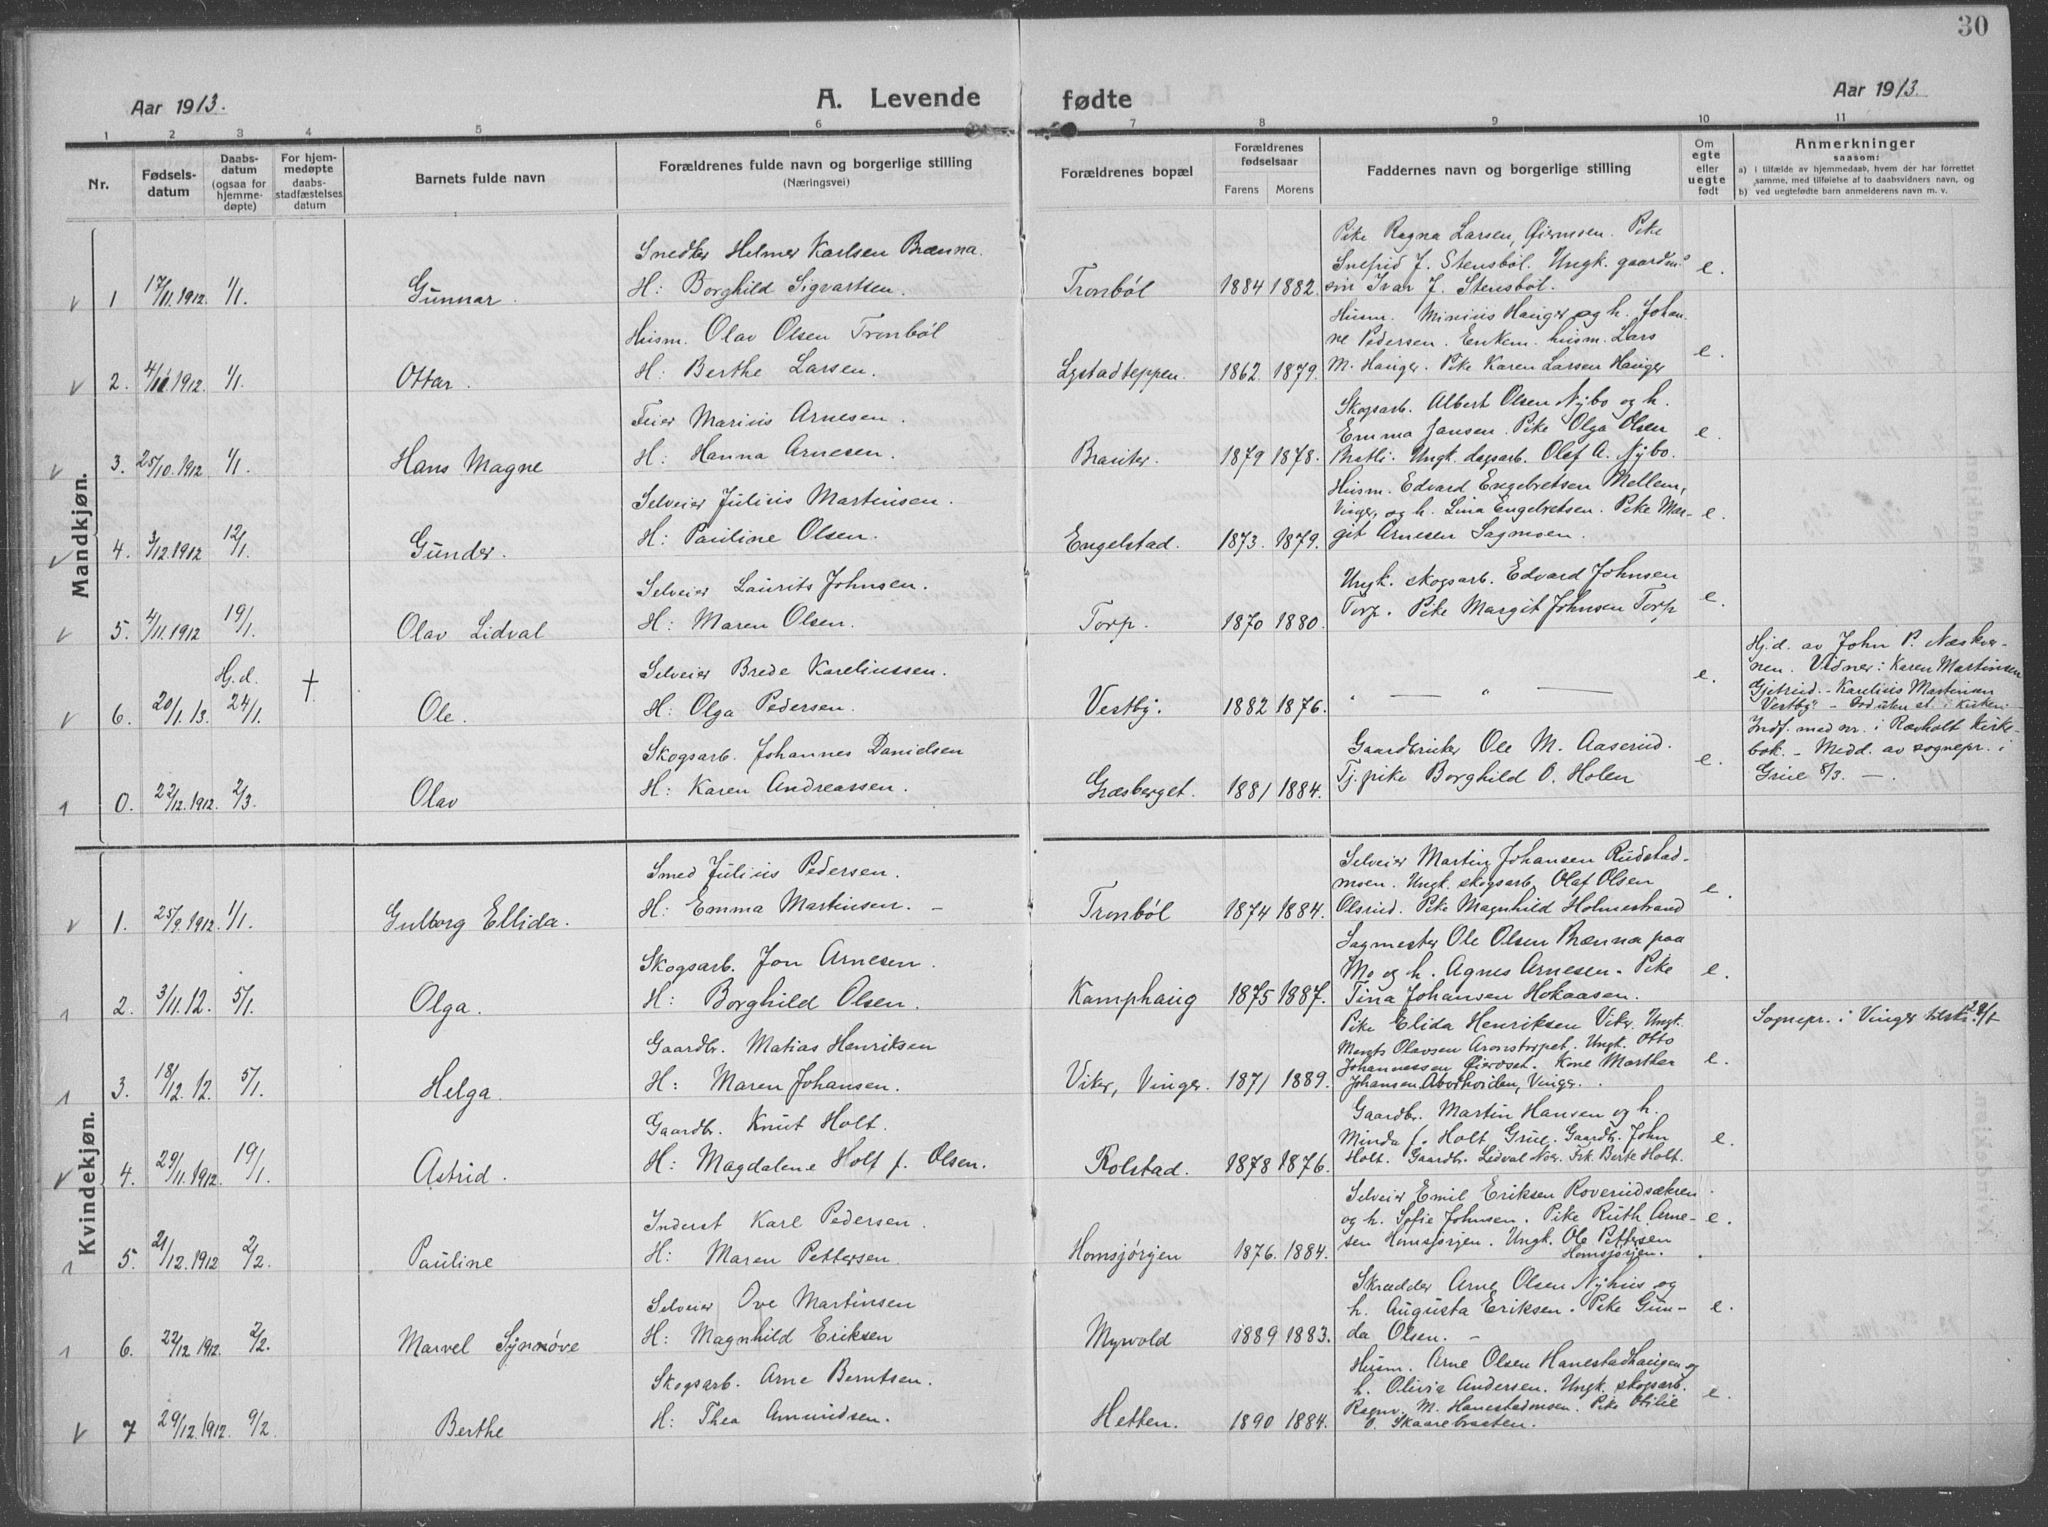 30
Aar 1913.
A. Levende
fødte
Aar 1913.
1 2 3 4 5 6 7 8 9 10 11
Nr.
Fødsels-
datum
Daabs-
datum
(ogsaa for
hjemme-
døpte)
For hjem-
medøpte
daabs-
stadfæstelses
datum
Barnets fulde navn
Forældrenes fulde navn og borgerlige stilling
(Næringsvei)
Forældrenes bopæl
Forældrenes
fødselsaar
Farens Morens
Faddernes navn og borgerlige stilling
Om
egte
eller
uegte
født
Anmerkninger
saasom:
a) i tilfælde av hjemmedaab, hvem der har forrettet
samme, med tilføielse af to daabsvidners navn, og
b) ved uegtefødte barn anmelderens navn m. v.
Mandkjøn.
Snedker Helmer Karlsen Brænna.
1 17/11.1912. 1/1. Gunnar. H: Borghild Sigvartsen. Tronbøl 1884 1882.
Pike Ragna Larsen, Øiermoen. Pike
Snefrid J. Stensbøl. Ungk. gaardm.
søn Ivar J. Stensbøl. e.
Husm. Olav Olsen Tronbøl
2. 4/11 1912. 1/1. Ottar. H: Berthe Larsen. Lystadteppen. 1862. 1879.
Husm. Minius Hauger og h. Johan-
ne Pedersen. Enkem. husm. Lars
M. Hauger. Pike Karen Larsen Hauger e.
Feier Marius Arnesen.
3. 25/10.1912 1/1. Hans Magne H: Hanna Arnesen. Brauter. 1879 1878.
Skogsarb. Albert Olsen Nybo og h.
Emma Jansen. Pike Olga Olsen
Bratli. Ungk. dagsarb. Olaf A. Nybo. e.
Selveier Julius Martinsen.
4. 3/12 1912 12/1. Gunder. H: Pauline Olsen. Engelstad. 1873. 1879.
Husm. Edvard Engebretsen Mellem,
Vinger, og h. Lina Engebretsen. Pike Mar-
git Arnesen Sagmoen. e.
Selveier Laurits Johnsen.
5. 4/11.1912 19/1. Olav Lidval H: Maren Olsen. Torp. 1870 1880.
Ungk. skogsarb. Edvard Johnsen
Torp. Pike Margit Johnsen Torp e.
Selveier Brede Kareliussen.
6. 20/1.13. Hj.d. 24/1. † Ole. H: Olga Pedersen. Vestby. 1882 1876. " — " — e.
Hj.d. av John P. Næskver-
nen. Vidner: Karen Martinsen
Gjetrud. - Karelius Martinsen
Vestby - Død uten st. i Kirken
Skogsarb. Johannes Danielsen
0. 22/12.1912. 2/3. Olav H: Karen Andreassen. Græsberget. 1881 1884.
Gaardbruker Ole M. Aaserud.
Tj.pike Borghild O. Holen e.
Indf. med nr. i Revholt Kirke-
bok. - Medd. av sognepr. i
Grue 8/3. —
Kvindekjøn.
Smed Julius Pedersen.
1. 25/9.1912. 1/1. Gulborg Ellida. H: Emma Martinsen. - Tronbøl 1874 1884.
Selveier Martin Johansen Rudstad-
moen. Ungk. skogsarb. Olaf Olsen
Olsrud. Pike Magnhild Holmestrand e.
Skogsarb. Jon Arnesen.
2. 3/11.12. 5/1. Olga. H: Borghild Olsen. Kamphaug 1875 1887.
Sagmester Ole Olsen Brænna paa
Mo og h. Agnes Arnesen. Pike
Tina Johansen Hokaasen. e.
Gaardbr. Matias Henriksen
3. 18/12.12. 5/1. Helga. H: Maren Johansen. Viker, Vinger. 1871 1889.
Pike Elida Henriksen Viker. Ungk.
Mangts Olavsen Aronstorpet. Ungk. Otto
Johannessen Øierdset. Kone Marthea
Johansen, Vinger. e.
Sognepr. i Vinger tilskr. 28/1
Gaardbr. Knut Holt.
4. 29/11.1912. 19/1. Astrid. H: Magdalene Holt f. Olsen. Rolstad. 1878 1876.
Gaardbr. Martin Hansen og h.
Minda f. Holt, Grue. Gaardbr. John
Holt. Gaardbr. Lidval Noer. Frk. Berte Holt. e.
Inderst Karl Pedersen.
5. 21/12.1912 2/2. Pauline H: Maren Pettersen. Homsjørgen 1876. 1884.
Selveier Emil Eriksen Roverudsækren
og h. Sofie Johnsen. Pike Ruth Arne-
sen Homsjørgen. Ungk. Ole Pettersen
Homsjørgen. e.
Selveier Ove Martinsen
6. 22/12 1912. 2/2. Marvel Synnøve H: Magnhild Eriksen Myrvold 1889 1883.
Skrædder Arne Olsen Nyhus og
h. Augusta Eriksen. Pike Gun-
da Olsen. - e.
Skogsarb. Arne Berntsen.
7 29/12.1912. 9/2. Berthe H: Thea Amundsen. Hetten. 1890 1884.
Husm. Arne Olsen Hanestadhaugen og
h. Olivia Andersen. Ungk. skogsarb.
Ragnv. M. Hanestadmoen. Pike Otilie
O. Skaarebraaten. e.